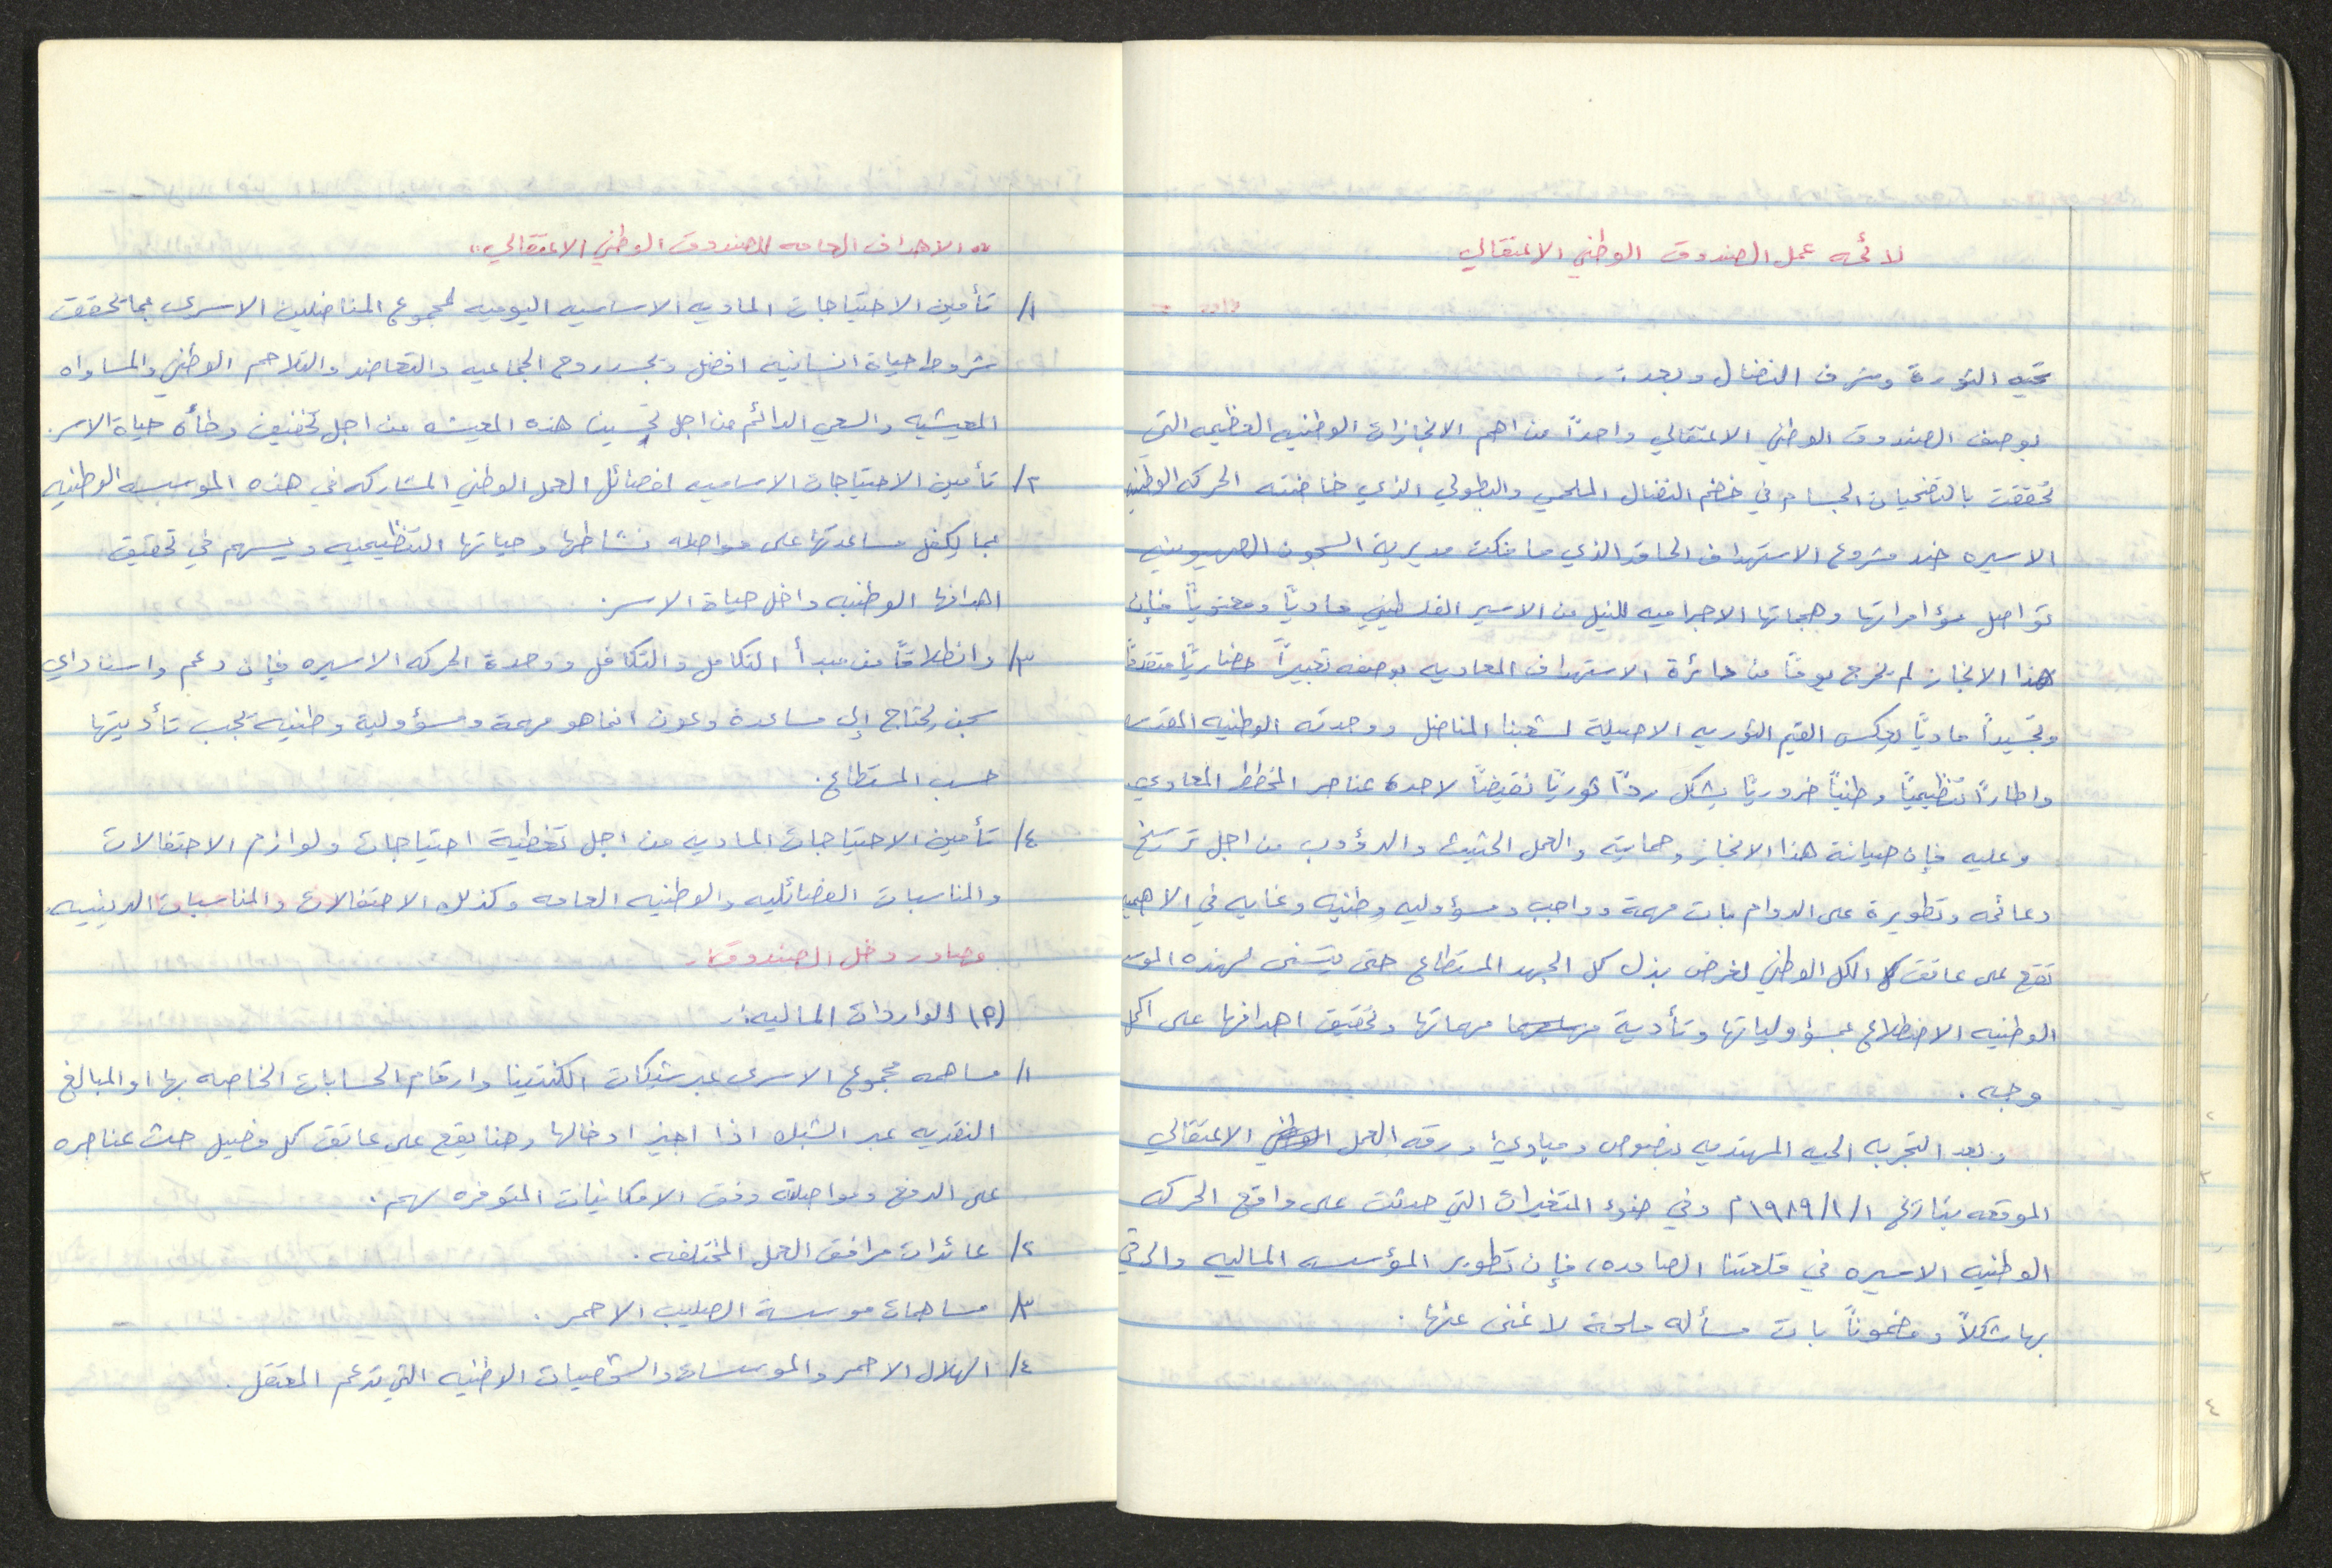 لائحه عمل الصندوق الوطني الاعتقالي
تحيه الثورة وشرف النضال وبعد :ـ
بوصف الصندوق الوطني الاعتقالي واحداً من اهم الانجازات الوطنيه العظيمه التي
تحققت بالتضحيات الجسام في خضم النضال الملحمي والبطولي الذي خاضته الحركه الوطنيه
الاسيره ضد مشروع الاستهداف الحاقد الذي ما فتئت مديرية السجون الصهيونيه
تواصل مؤامراتها وهجماتها الاجراميه للنيل من الاسير الفلسطيني مادياً ومعنوياً فإن
هذا الانجاز لم يخرج يوماً من دائرة الاستهداف المعاديه بوصفه تعبيراً حضارياً متقدماً
وتجسيداً مادياً يعكس القيم الثوريه الاصيلة لشعبنا المناضل ووحدته الوطنيه المقدسه
واطاراً تنظيمياً وطنياً ضرورياً يشكل رداً ثورياً نقيضاً لاحدى عناصر المخطط المعادي.
وعليه فإن صيانة هذا الانجاز وحمايته والعمل الحثيث والدؤوب من اجل ترسيخ
دعائمه وتطويرة على الدوام بات مهمة وواجب ومسؤوليه وطنيه وغايه في الاهميه
تقع على عاتق الكل الوطني لغرض بذل كل الجهد المستطاع حتى يتسنى لهذه المؤسسه
الوطنيه الاضطلاع بمسؤولياتها وتأدية مهماتها وتحقيق اهدافها على اكمل
وجه .
وبعد التجربه الحيه المهتديه بنصوص ومبادئ ورقه العمل الوطني الاعتقالي
الموقعه بتاريخ ١/١/١٩٨٩م وفي ضوء المتغيرات التي حدثت على واقع الحركه
الوطنيه الاسيره في قلعتنا الصامده، فإن تطوير المؤسسه الماليه والرقي
بها شكلاً ومضموناً بات مسأله ملحة لا غنى عنها .
"الاهداف العامه للصندوق الوطني الاعتقالي"
١/ تأمين الاحتياجات الماديه الاساسيه اليوميه لمجموع المناضلين الاسرى بما يحقق
شروط حياة انسانيه افضل وتجسد روح الجماعيه والتعاضد والتلاحم الوطني والمساواه
المعيشيه والسعي الدائم من اجل تحسين هذه المعيشه من اجل تخفيف وطأة حياة الاسر.
٢/ تأمين الاحتياجات الاساسيه لفصائل العمل الوطني المشاركه في هذه المؤسسه الوطنيه
بما يكفل مساعدتها على مواصله نشاطها وحياتها التنظيميه ويسهم في تحقيق
اهدافها الوطنيه داخل حياة الاسر.
٣/ وانطلاقاً من مبدأ التكامل والتكافل ووحدة الحركه الاسيره فإن دعم واسناد اي
سجن يحتاج إلى مساعدة وعون انما هو مهمة ومسؤولية وطنيه تجب تأديتها
حسب المستطاع.
٤/ تأمين الاحتياجات الماديه من اجل تغطية احتياجات ولوازم الاحتفالات
والمناسبات الفصائليه والوطنيه العامه وكذلك الاحتفالات والمناسبات الدينيه.
مصادر دخل الصندوق :ـ
(٢) الواردات الماليه :ـ
١/ مساهمه مجموع الاسرى عبر شيكات الكنتينا وارقام الحسابات الخاصه بها او المبالغ
النقديه عبر الشبك اذا اجيز ادخالها وهنا يقع على عاتق كل فصيل حث عناصره
على الدفع ومواصلة وفق الامكانيات المتوفره لهم.
٢/ عائدات مرافق العمل المختلفه .
٣/ مساهمات موسسة الصليب الاحمر .
٤/ الهلال الاحمر والموسسات والشخصيات الوطنيه التي تدعم المعتقل .